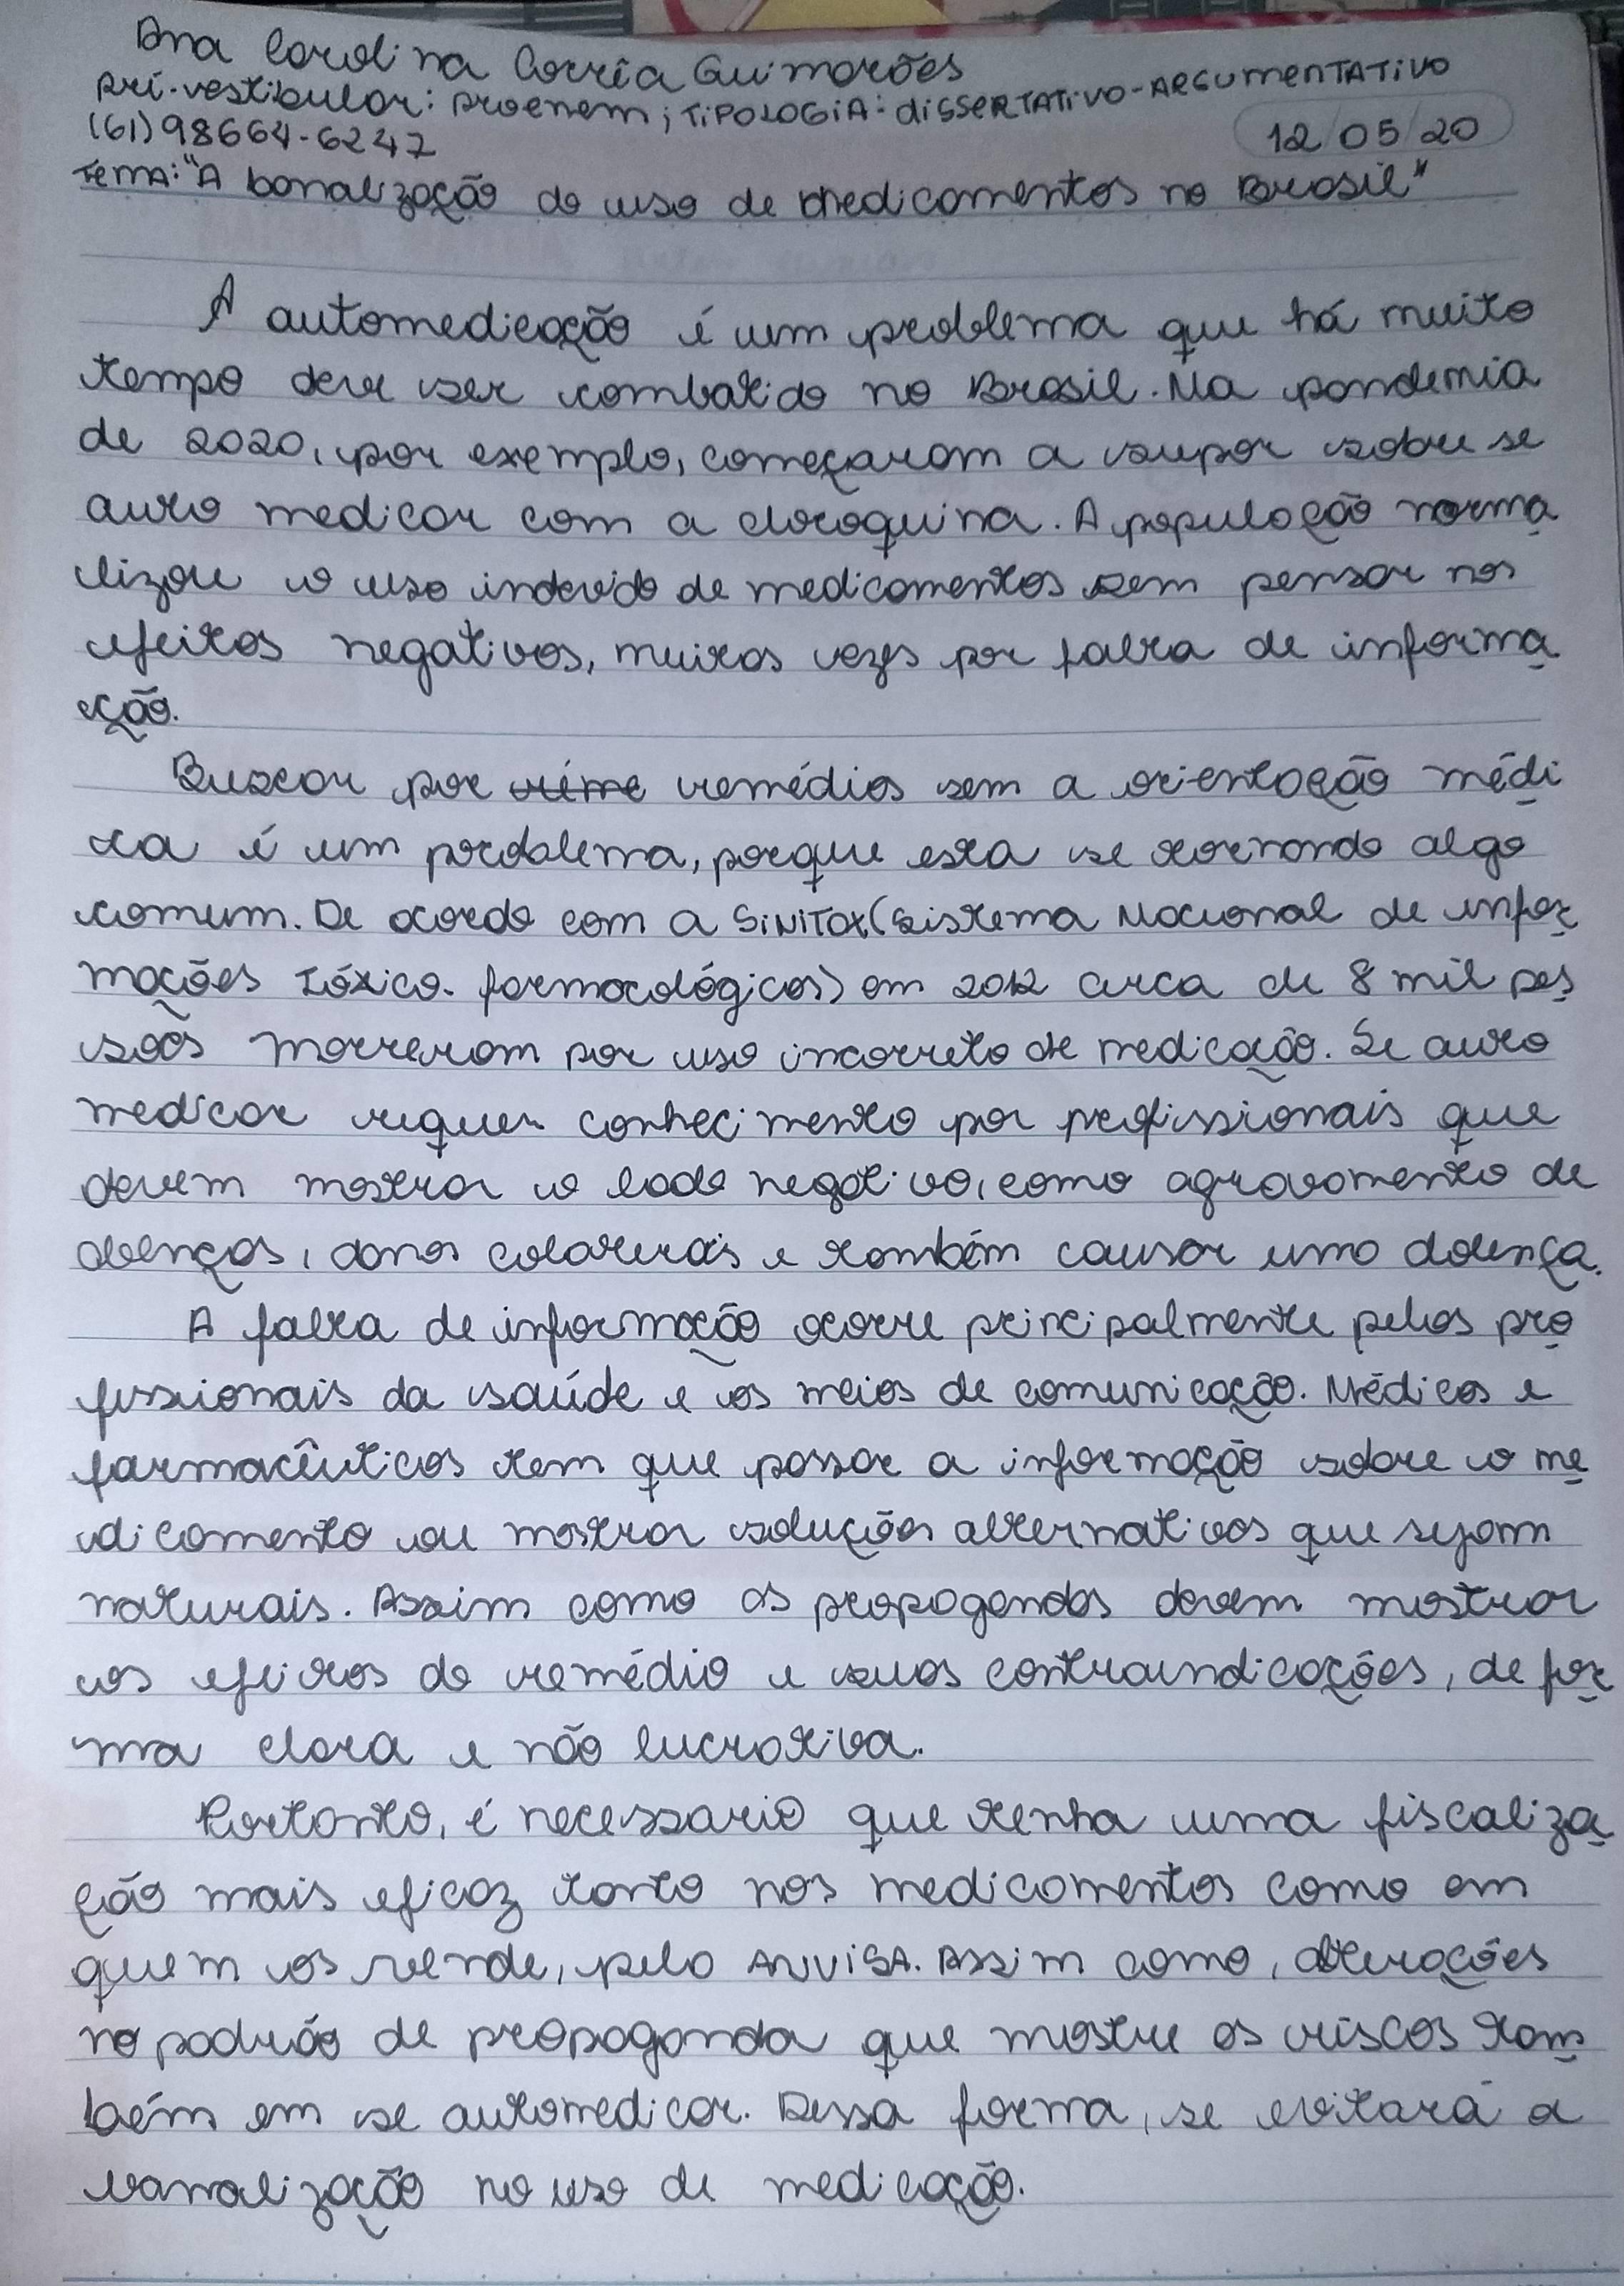 Ana Carolina Corrêa Guimarães
Pré-vestibular: proenem; TIPOLOGIA: DISSERTATIVO-ARGUMENTATIVO
(61)98664-6247
12/05/20
TEMA: "A banalização do uso de medicamentos no Brasil"
A automedicação é um problema que há muito
tempo deve ser combatido no Brasil. Na pandemia
de 2020, por exemplo, começaram a supor sobre se
auto medicar com a cloroquina. A população norma
lizou o uso indevido de medicamentos sem pensar nos
efeitos negativos, muitas vezes por falta de informa
ção.
Buscar por remédios sem a orientação médi
ca é um problema, porque esta se tornando algo
comum. De acordo com a SINITOX (Sistema Nacional de infor
mações Tóxico-farmacológicas) em 2012 cerca de 8 mil pes
soas morreram por uso incorreto de medicação. Se auto
medicar requer conhecimento por profissionais que
devem mostrar o lado negativo, como agravamento de
doenças, danos colaterais e também causar uma doença.
A falta de informação ocorre principalmente pelos pro
fissionais da saúde e os meios de comunicação. Médicos e
farmacêuticos tem que passar a informação sobre o me
dicamento ou mostrar soluções alternativas que sejam
naturais. Assim como as propagandas devem mostrar
os efeitos do remédio e suas contraindicações, de for
ma clara e não lucrativa.
Portanto, é necessario que tenha uma fiscaliza
ção mais eficaz tanto nos medicamentos como em
quem os vende, pelo ANVISA. Assim como, alterações
no padrão de propaganda que mostre os riscos tam
bém em se automedicar. Dessa forma, se evitará a
banalização no uso de medicação.